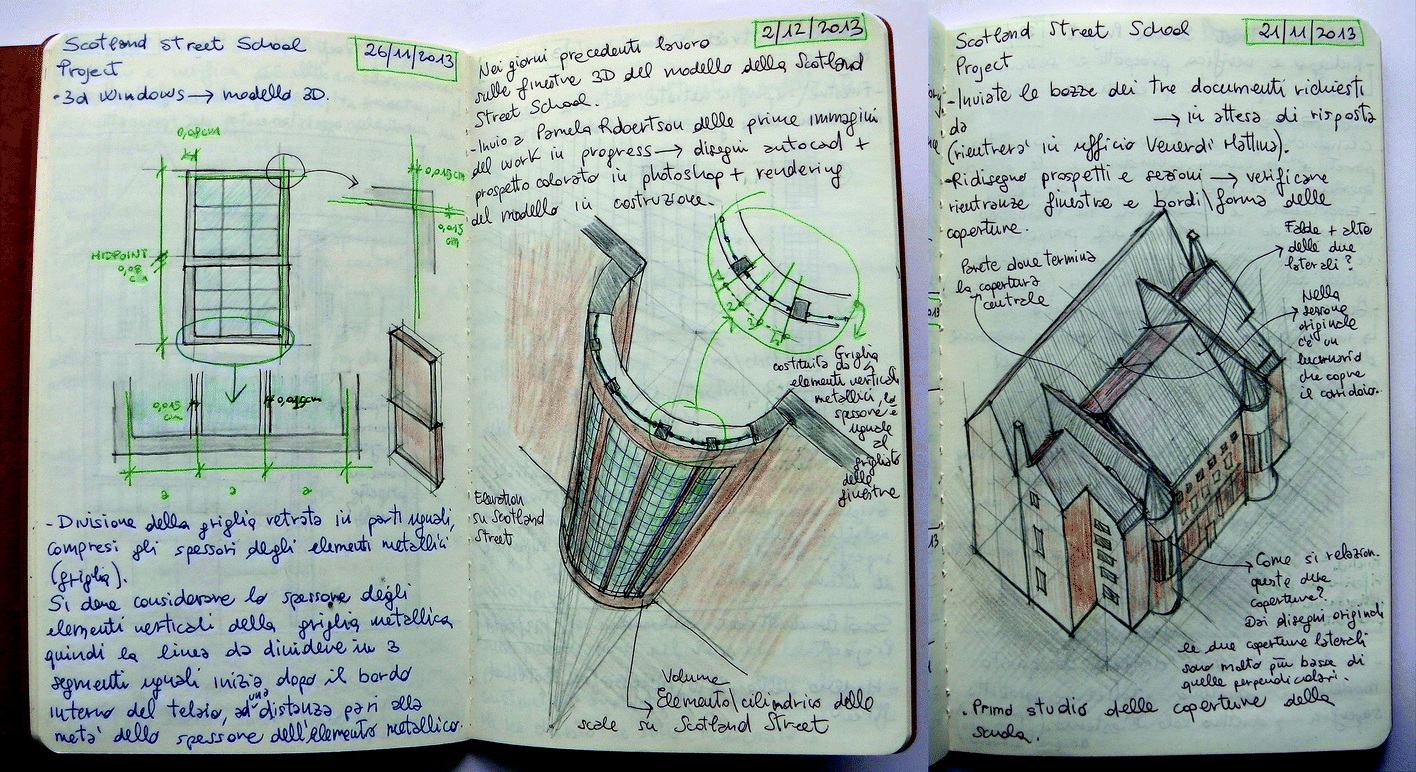 Scotland Street School
26/11/2013
Project
- 3d windows → modello 3D.
0,08cm
0,015cm
0,015
cm
MIDPOINT
0,08
cm
0,015
cm
0,015cm
a
a
a
- Divisione della griglia vetrata in parti uguali,
compresi gli spessori degli elementi metallici
(griglia).
Si deve considerare lo spessore degli
elementi verticali della griglia metallica
quindi la linea da dividere in 3
segmenti uguali inizia dopo il bordo
interno del telaio, ad una distanza pari alla
metà dello spessore dell'elemento metallico.
2/12/2013
Nei giorni precedenti lavoro
sulle finestre 3D del modello della Scotland
Street School.
- Invio a Pamela Robertson delle prime immagini
del work in progress → disegni autocad +
prospetto colorato in photoshop +, rendering
del modello in costruzione.
Griglia
costituita da 4
elementi verticali
metallici, lo
spessore è
uguale
al
grigliato
delle
finestre
Elevation
su Scotland
Street
Volume
Elemento\cilindrico delle
scale su Scotland Street
Scotland Street School
21/11/2013
Project
- Inviate le bozze dei tre documenti richiesti
da → in attesa di risposta
(rientrerà in ufficio Venerdì Mattina).
- Ridisegno prospetti e sezioni → verificare
rientranze finestre e bordi\forma delle
coperture.
Parete dove termina
la copertura
centrale
Falde + alte
delle due
laterali?
Nella
sezione
originale
c'è un
lucernario
che copre
il corridoio.
Come si relazion.
queste due
coperture?
Dai disegni originali
le due coperture laterali
sono molto più basse di
quelle perpendicolari.
. Primo studio delle coperture della
scuola.